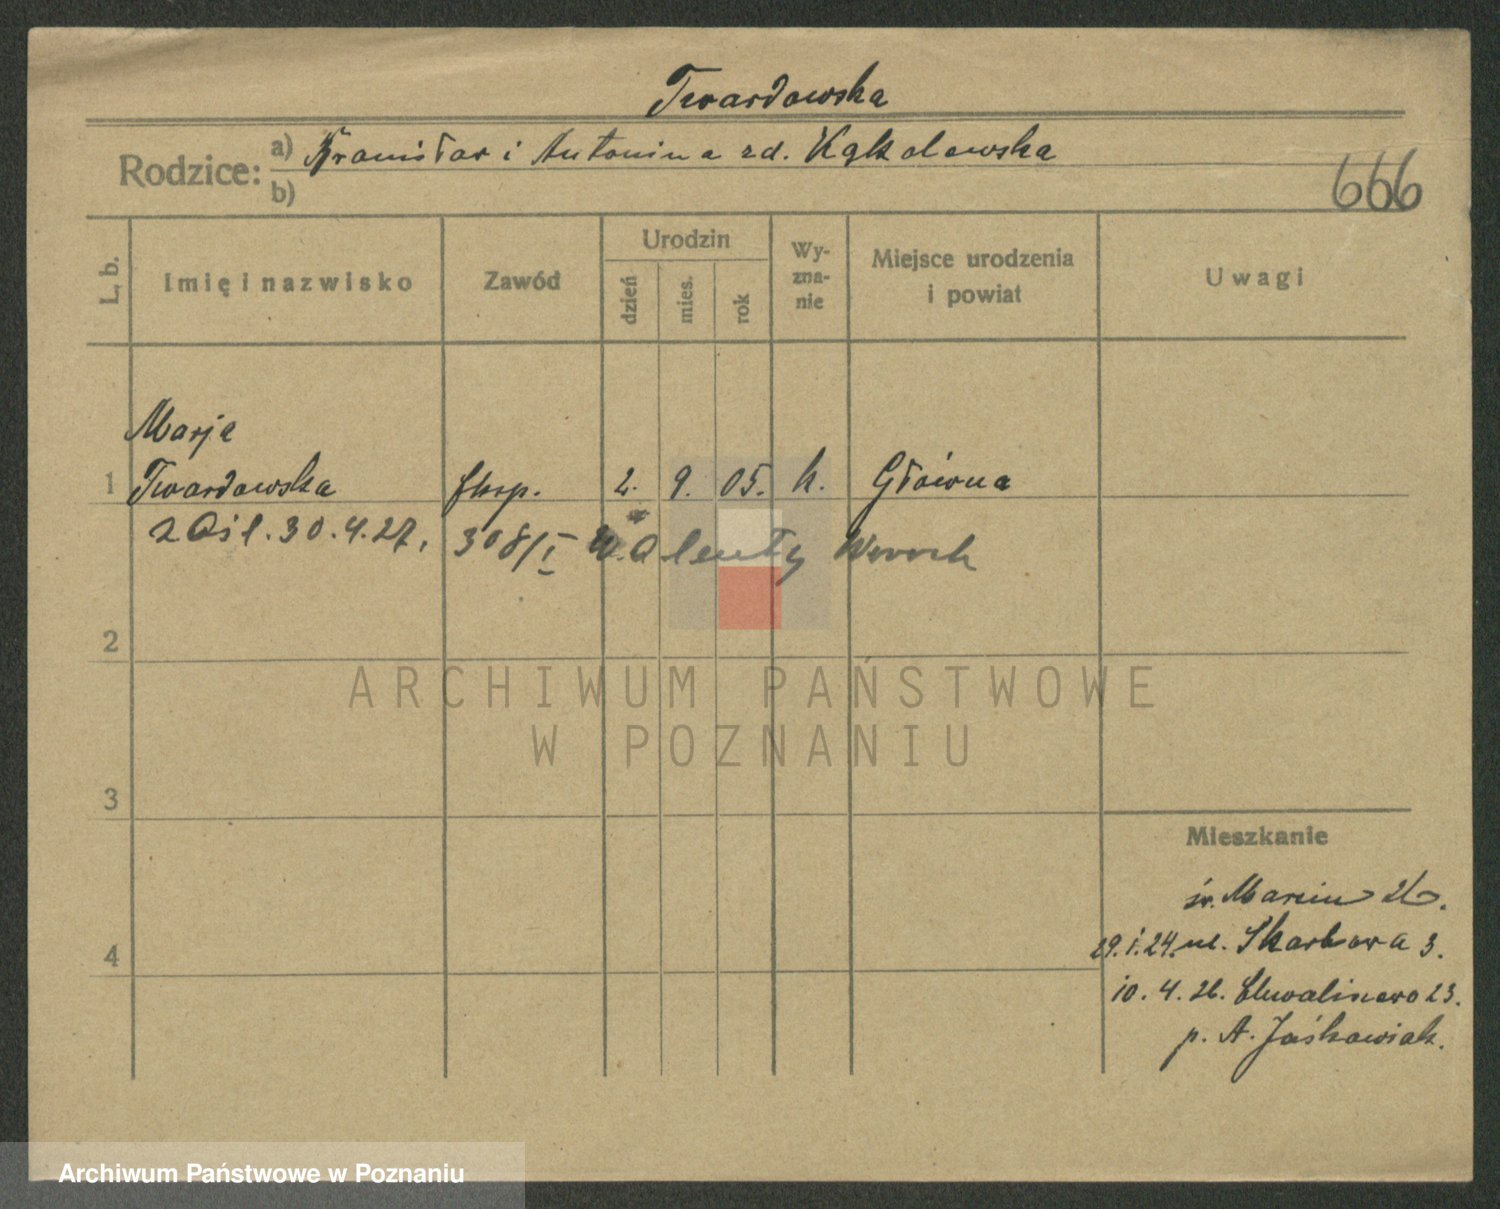 Twardowska
Rodzice: a) Bronisław i Antonina zd. Kąkolewska
b)
666
L. b.
Imię i nazwisko
Zawód
Urodzin
dzień
mies.
rok
Wy-
zna-
nie
Miejsce urodzenia
i powiat
Uwagi
Marja
1 Twardowska Eksp. 2. 9. 05. k. Główna
30.4.27. 308/I Walenty
2
ARCHIWUM PAŃSTWOWE
W POZNANIU
3
Mieszkanie
św. Marcin 26.
29.1.24. ul. Skarbowa 3.
4
10.4.26. Chwaliszewo 23.
p. A. Jaśkowiak.
Archiwum Państwowe w Poznaniu